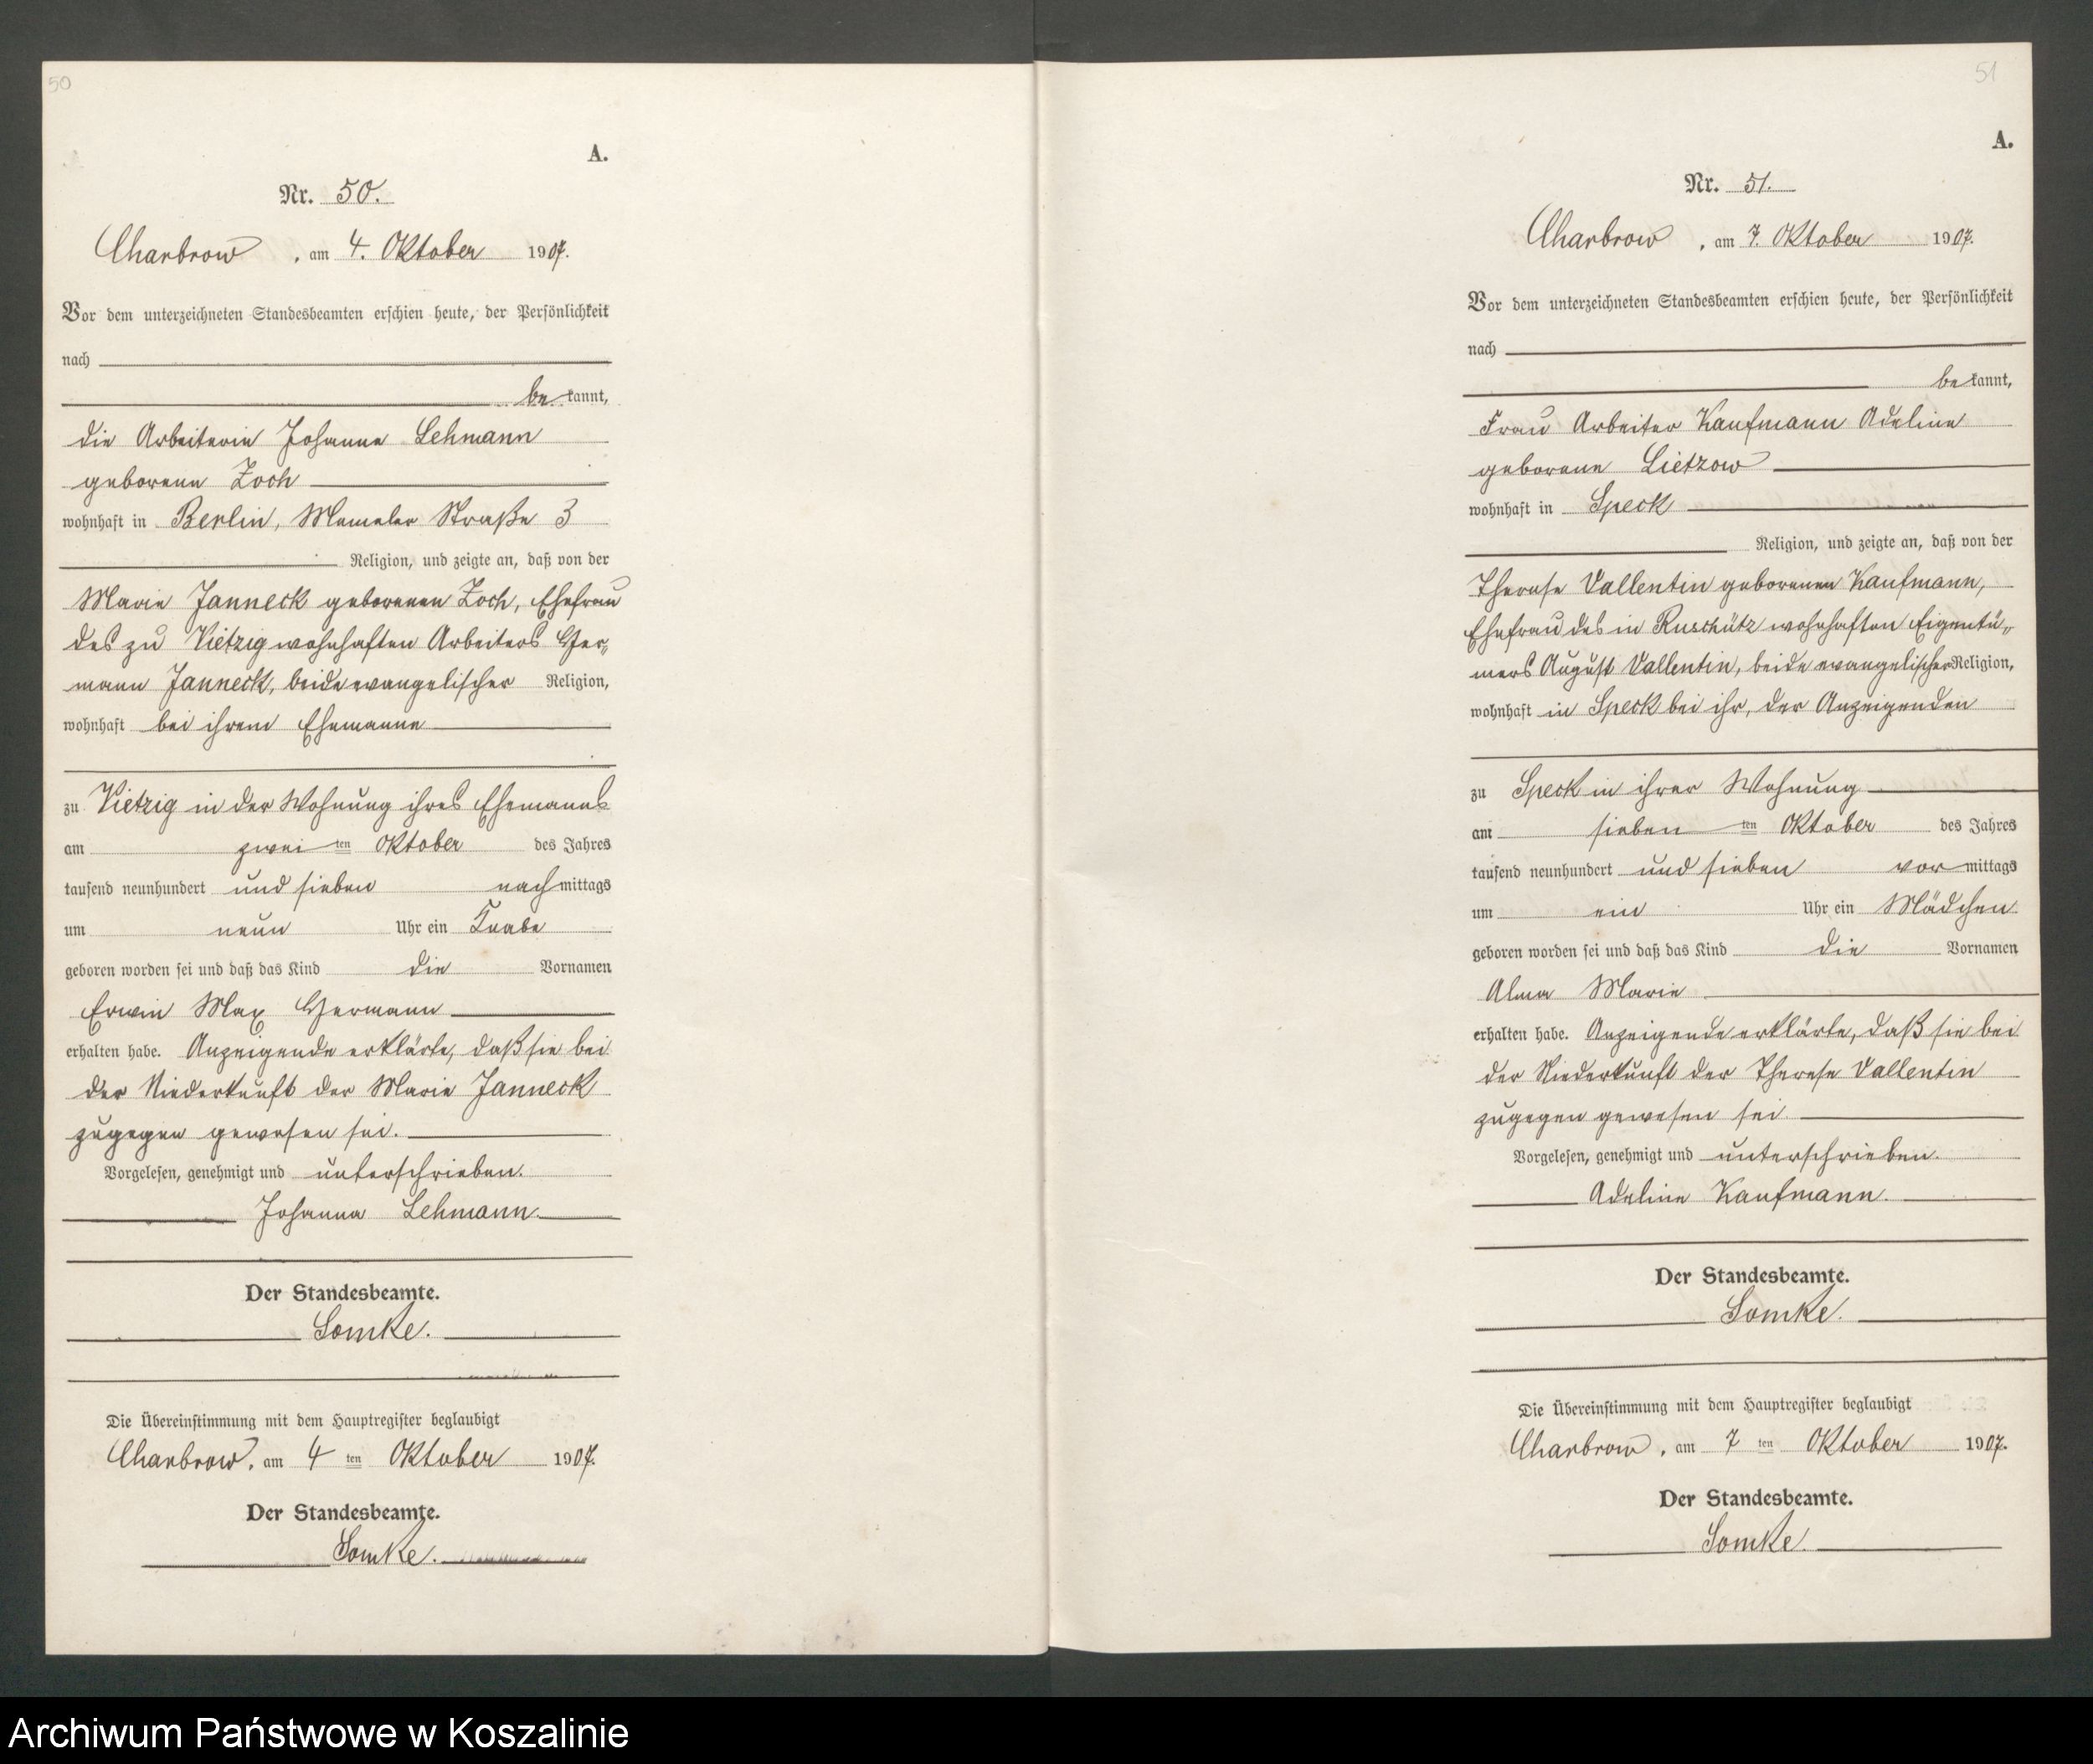 50
A.
Nr. 50.
Charbrow, am 4. Oktober 1907.
Vor dem unterzeichneten Standesbeamten erschien heute, der Persönlichkeit
nach
bekannt,
die Arbeiterin Johanna Lehmann
geborene Zoch
wohnhaft in Berlin, Memeler Straße 3
Religion, und zeigte an, daß von der
Marie Janneck geborenen Zoch, Ehefrau
des zu Vietzig wohnhaften Arbeiters Her„
mann Janneck, beide evangelischer Religion,
wohnhaft bei ihrem Ehemanne
zu Vietzig in der Wohnung ihres Ehemanns
am zwei ten Oktober des Jahres
tausend neunhundert und sieben nachmittags
um neun Uhr ein Knabe
geboren worden sei und daß das Kind die Vornamen
Erwin Max Hermann
erhalten habe. Anzeigende erklärte, daß sie bei
der Niederkunft der Marie Janneck
zugegen gewesen sei.
Vorgelesen, genehmigt und unterschrieben.
Johanna Lehmann.
Der Standesbeamte.
Somke.
Die Übereinstimmung mit dem Hauptregister beglaubigt
Charbrow, am 4 ten Oktober 1907.
Der Standesbeamte.
Somke.
51
A.
Nr. 51.
Charbrow, am 7. Oktober 1907.
Vor dem unterzeichneten Standesbeamten erschien heute, der Persönlichkeit
nach
bekannt,
Frau Arbeiter Kaufmann Adeline
geborene Lietzow
wohnhaft in Speck
Religion, und zeigte an, daß von der
Therese Vallentin geborenen Kaufmann,
Ehefrau des in Ruschütz wohnhaften Eigentü„
mers August Vallentin, beide evangelischer Religion,
wohnhaft in Speck bei ihr, der Anzeigenden
zu Speck in ihrer Wohnung
am sieben ten Oktober des Jahres
tausend neunhundert und sieben vormittags
um ein Uhr ein Mädchen
geboren worden sei und daß das Kind die Vornamen
Alma Marie
erhalten habe. Anzeigende erklärte, daß sie bei
der Niederkunft der Therese Vallentin
zugegen gewesen sei
Vorgelesen, genehmigt und unterschrieben.
Adeline Kaufmann.
Der Standesbeamte.
Somke.
Die Übereinstimmung mit dem Hauptregister beglaubigt
Charbrow, am 7 ten Oktober 1907.
Der Standesbeamte.
Somke.
Archiwum Państwowe w Koszalinie